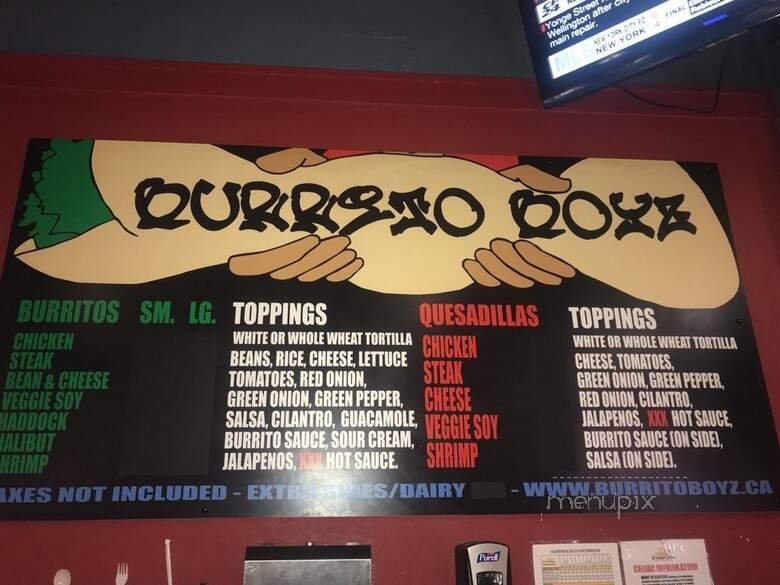 Yonge Street
Wellington after city
main repair.
MLS
NEW YORK CITY FC 0
NEW YORK 4
FINAL
TOSHIBA
BURRITO BOYZ
BURRITOS SM. LG.
CHICKEN
STEAK
BEAN & CHEESE
VEGGIE SOY
HADDOCK
HALIBUT
SHRIMP
TOPPINGS
WHITE OR WHOLE WHEAT TORTILLA
BEANS, RICE, CHEESE, LETTUCE
TOMATOES, RED ONION,
GREEN ONION, GREEN PEPPER,
SALSA, CILANTRO, GUACAMOLE,
BURRITO SAUCE, SOUR CREAM,
JALAPENOS, XXX HOT SAUCE.
QUESADILLAS
CHICKEN
STEAK
CHEESE
VEGGIE SOY
SHRIMP
TOPPINGS
WHITE OR WHOLE WHEAT TORTILLA
CHEESE, TOMATOES,
GREEN ONION, GREEN PEPPER,
RED ONION, CILANTRO,
JALAPENOS, XXX HOT SAUCE,
BURRITO SAUCE (ON SIDE),
SALSA (ON SIDE).
AXES NOT INCLUDED - EXTRA /DAIRY - WWW.BURRITOBOYZ.CA
menupix
Purell
CELIAC INFORMATION